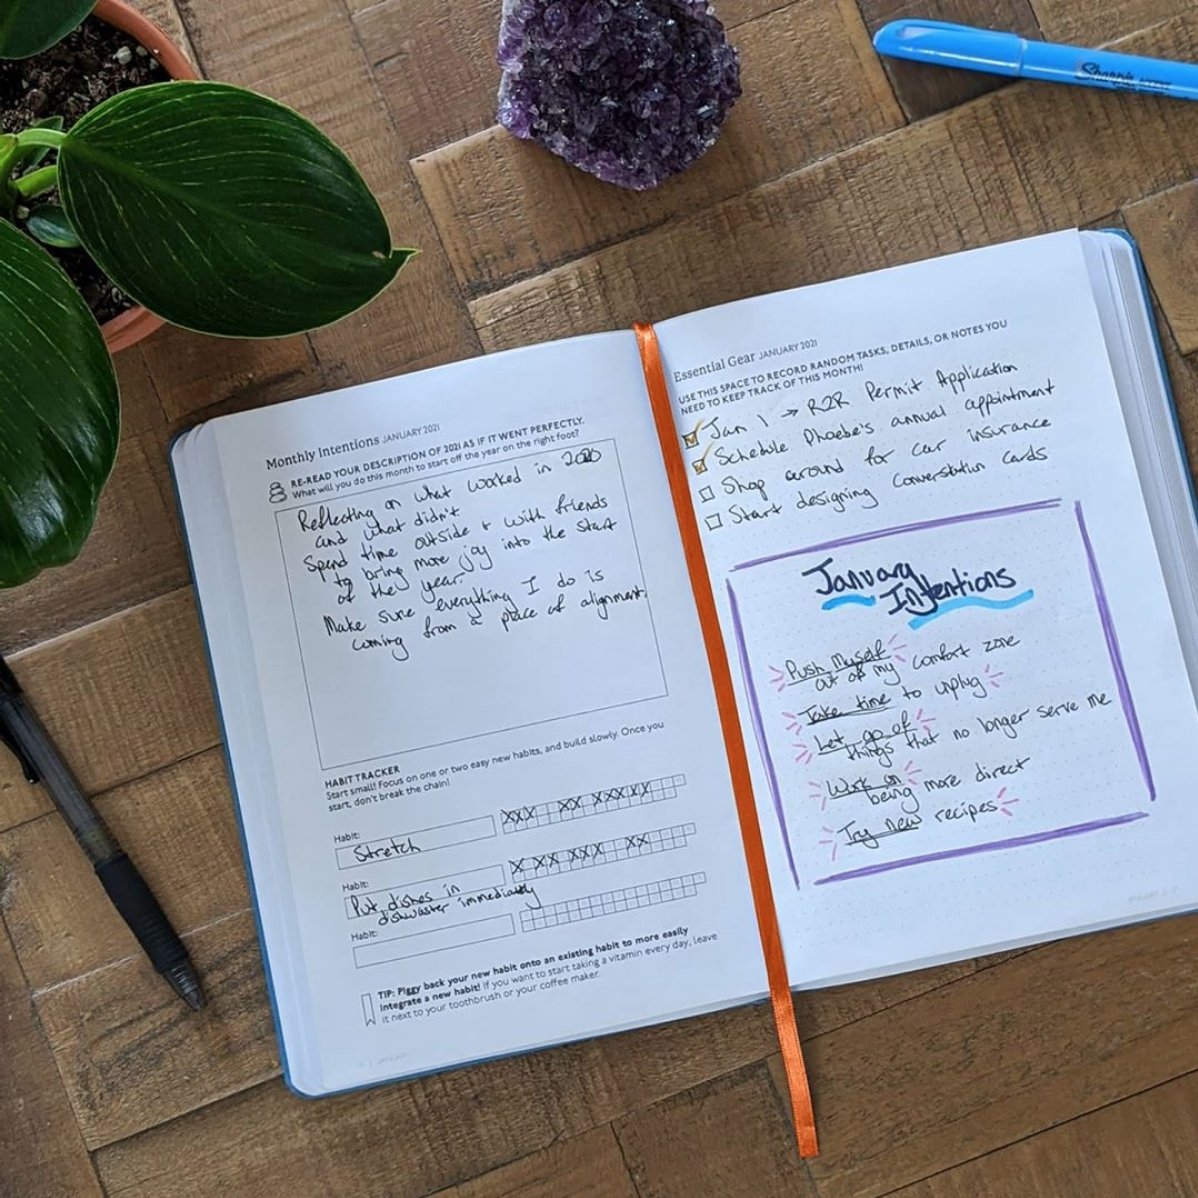 Sharpie
Monthly Intentions JANUARY 2021
RE-READ YOUR DESCRIPTION OF 2021 AS IF IT WENT PERFECTLY.
What will you do this month to start off the year on the right foot?
Reflecting on what worked in 2020
and what didn't
Spend time outside + with friends
to bring more joy into the start
of the year
Make sure everything I do is
coming from a place of alignment.
HABIT TRACKER
Start small! Focus on one or two easy new habits, and build slowly. Once you
start, don't break the chain!
Habit:
Stretch
XXX XX XXXXXX
Habit:
Put dishes in
dishwasher immediately
X XX XXX XX
Habit:
TIP: Piggy back your new habit onto an existing habit to more easily
integrate a new habit! If you want to start taking a vitamin every day, leave
it next to your toothbrush or your coffee maker.
Essential Gear JANUARY 2021
USE THIS SPACE TO RECORD RANDOM TASKS, DETAILS, OR NOTES YOU
NEED TO KEEP TRACK OF THIS MONTH!
Jan 1 → R2R Permit Application
Schedule Phoebe's annual appointment
Shop around for car insurance
Start designing conversation cards
January
Intentions
Push Myself
out of my comfort zone
Take time to unplug
Let go of
things that no longer serve me
Work on
being more direct
Try new recipes